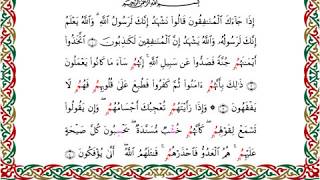 بِسْمِ اللَّهِ الرَّحْمَٰنِ الرَّحِيمِ
إِذَا جَاءَكَ الْمُنَافِقُونَ قَالُوا نَشْهَدُ إِنَّكَ لَرَسُولُ اللَّهِ ۗ وَاللَّهُ يَعْلَمُ
إِنَّكَ لَرَسُولُهُ وَاللَّهُ يَشْهَدُ إِنَّ الْمُنَافِقِينَ لَكَاذِبُونَ ۝ اتَّخَذُوا
أَيْمَانَهُمْ جُنَّةً فَصَدُّوا عَن سَبِيلِ اللَّهِ ۚ إِنَّهُمْ سَاءَ مَا كَانُوا يَعْمَلُونَ
۝ ذَٰلِكَ بِأَنَّهُمْ آمَنُوا ثُمَّ كَفَرُوا فَطُبِعَ عَلَىٰ قُلُوبِهِمْ فَهُمْ لَا
يَفْقَهُونَ ۝ وَإِذَا رَأَيْتَهُمْ تُعْجِبُكَ أَجْسَامُهُمْ ۖ وَإِن يَقُولُوا
تَسْمَعْ لِقَوْلِهِمْ ۖ كَأَنَّهُمْ خُشُبٌ مُّسَنَّدَةٌ ۖ يَحْسَبُونَ كُلَّ صَيْحَةٍ
عَلَيْهِمْ ۚ هُمُ الْعَدُوُّ فَاحْذَرْهُمْ ۚ قَاتَلَهُمُ اللَّهُ ۖ أَنَّىٰ يُؤْفَكُونَ ۝